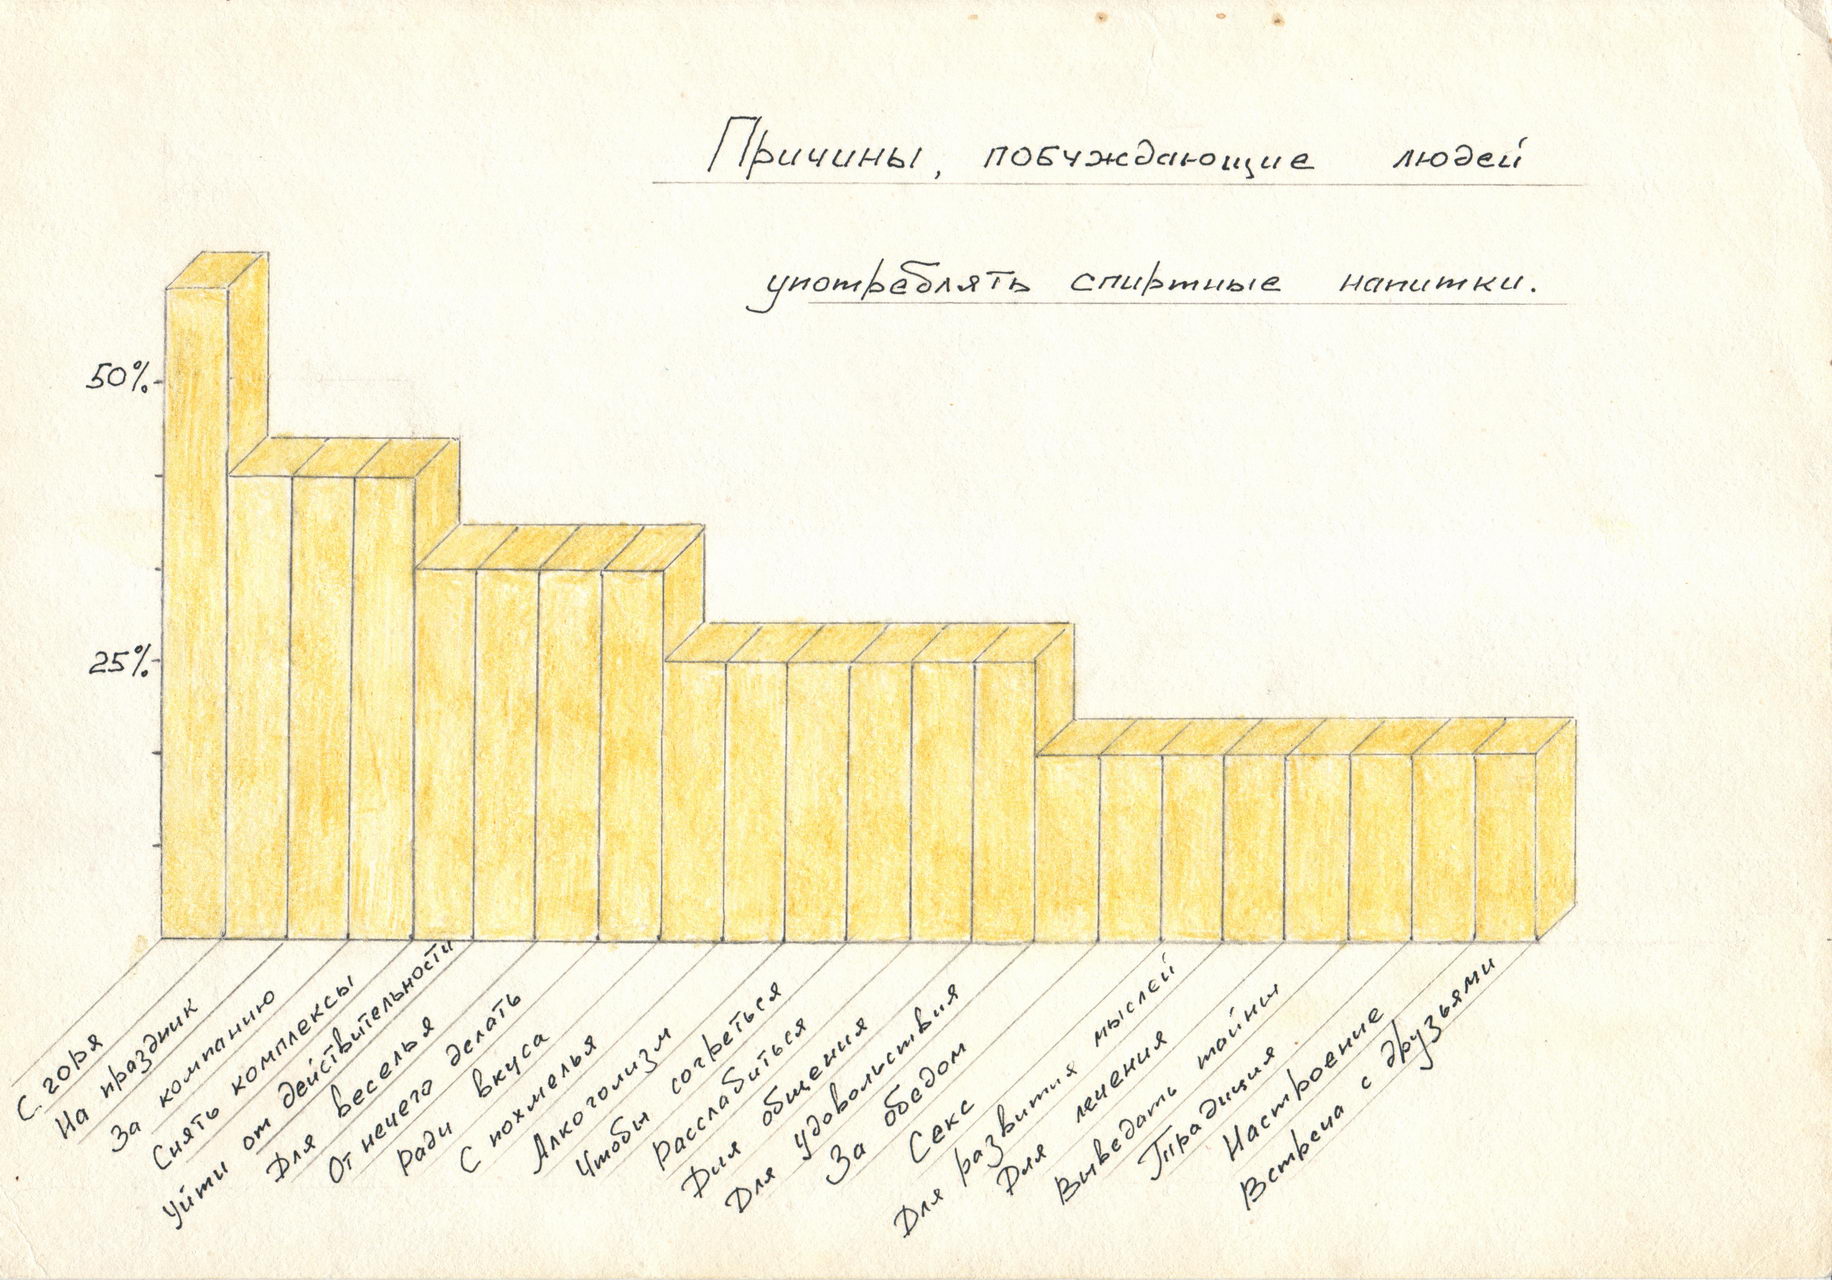 Причины, побуждающие людей
употреблять спиртные напитки.
50%
25%
С горя
На праздник
За компанию
Снять комплексы
Уйти от действительности
Для веселья
От нечего делать
Ради вкуса
С похмелья
Алкоголизм
Чтобы согреться
Расслабиться
Для общения
Для удовольствия
За обедом
Секс
Для развития мыслей
Для лечения
Выведать тайны
Традиция
Настроение
Встреча с друзьями